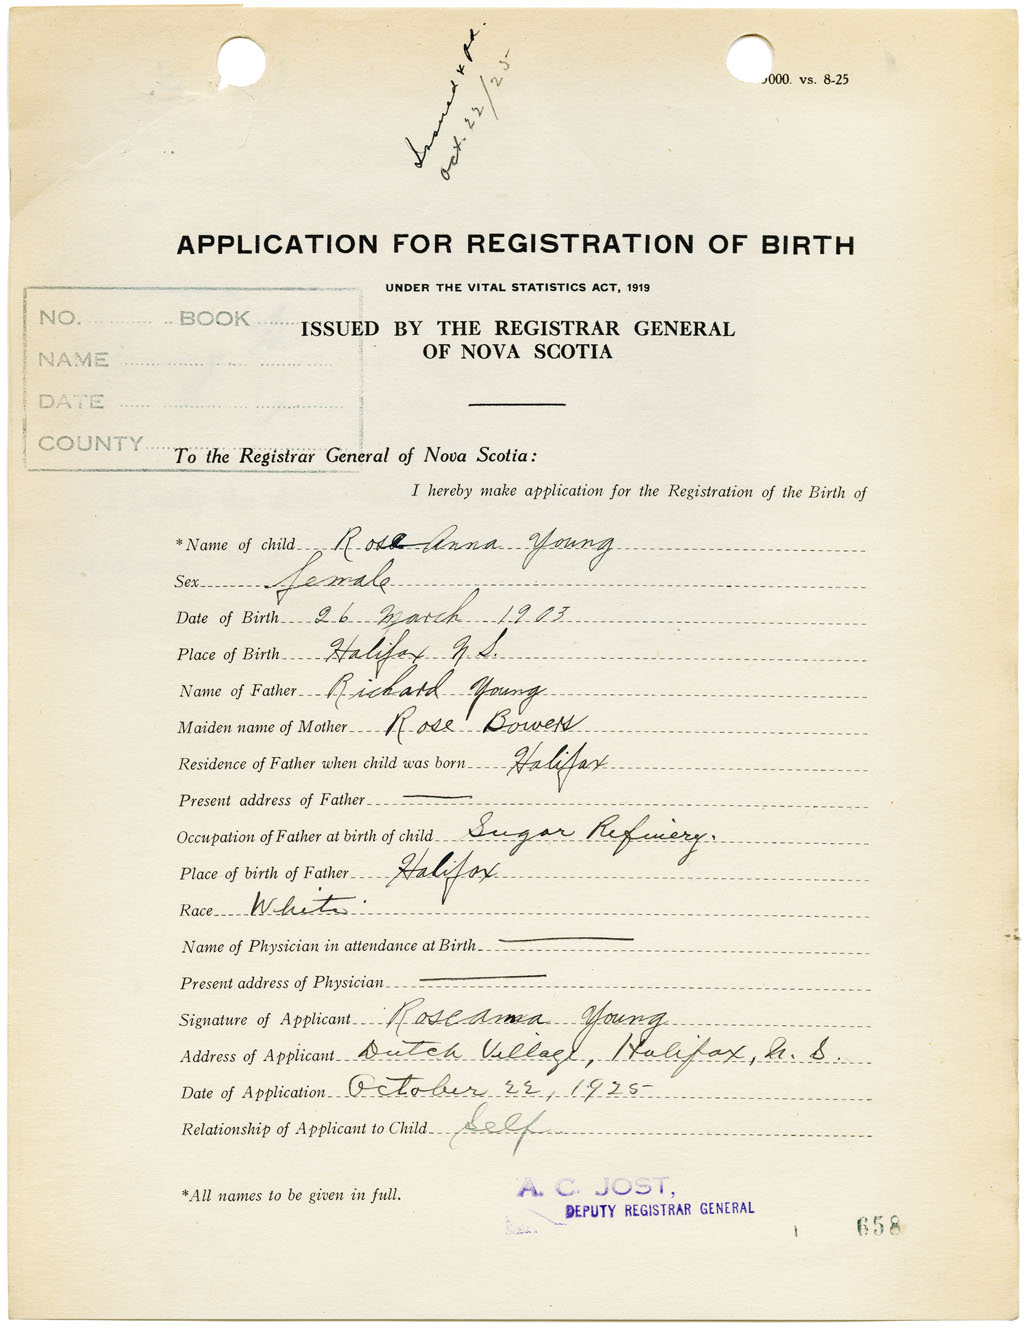 Issued & pd.
Oct. 22/25
000. vs. 8-25
APPLICATION FOR REGISTRATION OF BIRTH
UNDER THE VITAL STATISTICS ACT, 1919
ISSUED BY THE REGISTRAR GENERAL
OF NOVA SCOTIA
NO. BOOK
NAME
DATE
COUNTY
To the Registrar General of Nova Scotia:
I hereby make application for the Registration of the Birth of
*Name of child Rose Anna Young
Sex female
Date of Birth 26 March 1903
Place of Birth Halifax N.S.
Name of Father Richard Young
Maiden name of Mother Rose Bowers
Residence of Father when child was born Halifax
Present address of Father
Occupation of Father at birth of child Sugar Refinery.
Place of birth of Father Halifax
Race White
Name of Physician in attendance at Birth
Present address of Physician
Signature of Applicant Roseanna Young
Address of Applicant Dutch Village, Halifax, N. S.
Date of Application October 22, 1925
Relationship of Applicant to Child Self
*All names to be given in full.
A. C. JOST,
DEPUTY REGISTRAR GENERAL
658